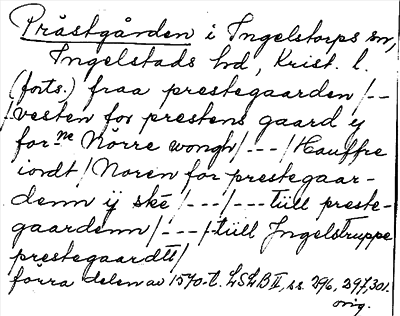 Prästgården i Ingelstorps sn,
Ingelstads hd, Krist. l.
(forts.) fraa prestegaarden/--
/vesten for prestens gaard ÿ
for:ne Nörre wongh/---/Hauffre
iordt/Noren for prestegaar-
denn ÿ ské/---/---tiill preste-
gaardenn/---/tiill Jngelstruppe
prestegaardtt/
förra delen av 1570-t. LSLB II, ss. 296, 297, 301.
orig.